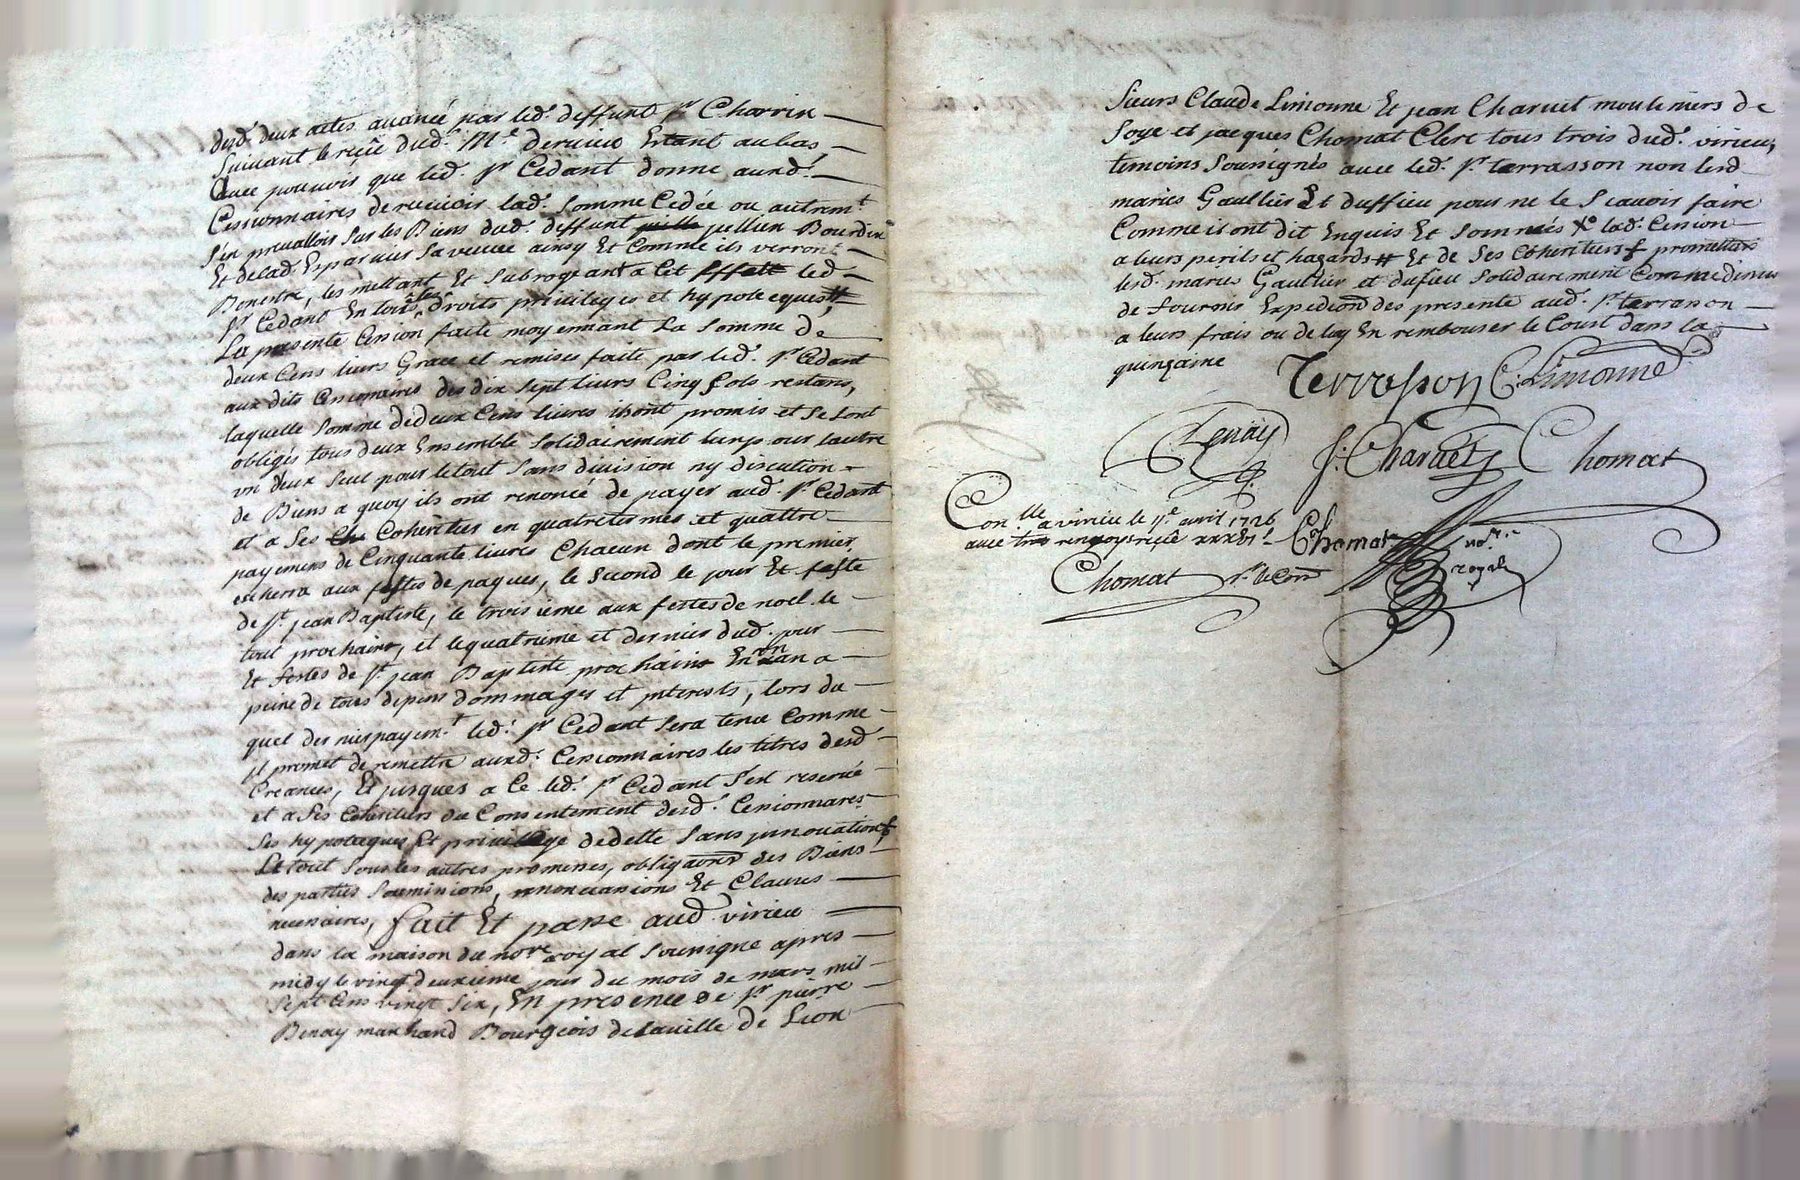 desd. deux actes avancé par led. deffunt sr. Charrin
suivant le reçû dud. Me. Dervieu Estant au bas,
Avec pouvoir que led. sr. Cedant donne auxd.
Cessionnaires de recevoir lad. somme Cedée ou autremt.
s'en prevalloir sur les Biens dud. deffunt jullien Bourdin
Et de lad. Esparvier sa veuve ainsy Et Comme ils verront
Bonestre, les mettant Et subrogeant a Cet Effett led.
sr. Cedant En tous ses droits privileges et hypotecques,
La presente Cession faite moyennant La somme de
deux Cens livres Grace et remises faite par led. sr. Cedant
aux dits Cessionnaires des dix sept livres Cinq sols restans,
laquelle somme de deux Cens livres ils ont promis et se sont
obligés tous deux Ensemble solidairement lun pour lautre
un deux seul pour le tout sans division ny discution
de Biens a quoy ils ont renoncé de payer aud. sr. Cedant
et a ses Coheritiers en quatre termes et quattre
payemens de Cinquante livres Chacun dont le premier
echerra aux festes de paques, le second le jour Et feste
de st. jean Baptiste, le troisieme aux festes de noel le
tout prochains, et le quatrieme et dernier dud. jour
Et festes de st. jean Baptiste prochains En un an a
peine de tous depens dommages et interests, lors du
quel dernier payemt. led. sr. Cedant sera tenu Comme
il promet de remettre auxd. Cessionnaires les titres desd.
Creances, Et jusques a Ce led. sr. Cedant s'est reservé
et a ses Coheritiers du Consentement desd. Cessionnaires
ses hypotecques Et privilege dedette sans innovation
Le tout sous les autres promesses, obligaons des Biens
des parties soumissions, renonciations Et Clauses
necessaires, fait Et passé aud. virieu
dans la maison du nore. royal soussigné apres
midy le vingt deuxieme jour du mois de mars mil
sept Cens vingt six, En presence de sr. pierre
Benay marchand Bourgeois de la ville de Lion
sieurs Claude Limonne Et jean Charvet mouliniers de
soye et jacques Chomat Clerc tous trois dud. virieu,
temoins soussignés avec led. sr. terrasson non lesd.
mariés Gaultier Et duffieu pour ne le scavoir faire
Comme ils ont dit Enquis Et sommés Xo lad. Cession
a leurs perils et hazards # Et de ses Coheritiers f promettans
lesd. mariés Gaultier et dufieu solidairement Comme dessus
de fournir Expedition des presente aud. sr. terrasson
a leurs frais ou de luy En rembourser le Coust dans la
quinzaine
Terrasson C. Limonne
Benay J. Charvet Chomat
Conlle. a virieu le 1e. avril 1726
avec trois renvoys reçu Chomat nore. royal
Chomat